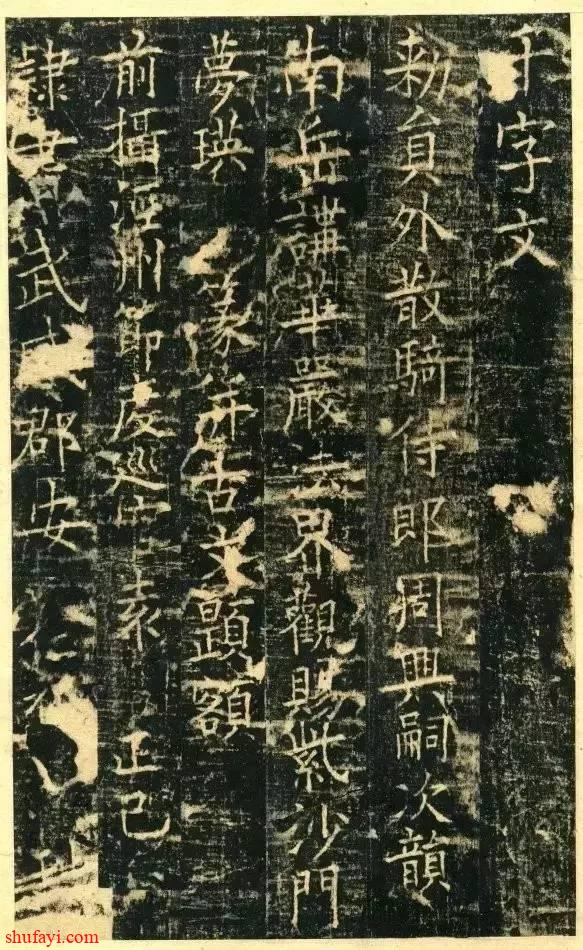 千字文
勑員外散騎侍郎周興嗣次韻
南岳講華嚴法界觀賜紫沙門
夢瑛 篆并古文題額
前攝涇州節度巡官袁 正己
隸書 武威郡安
shufayi.com